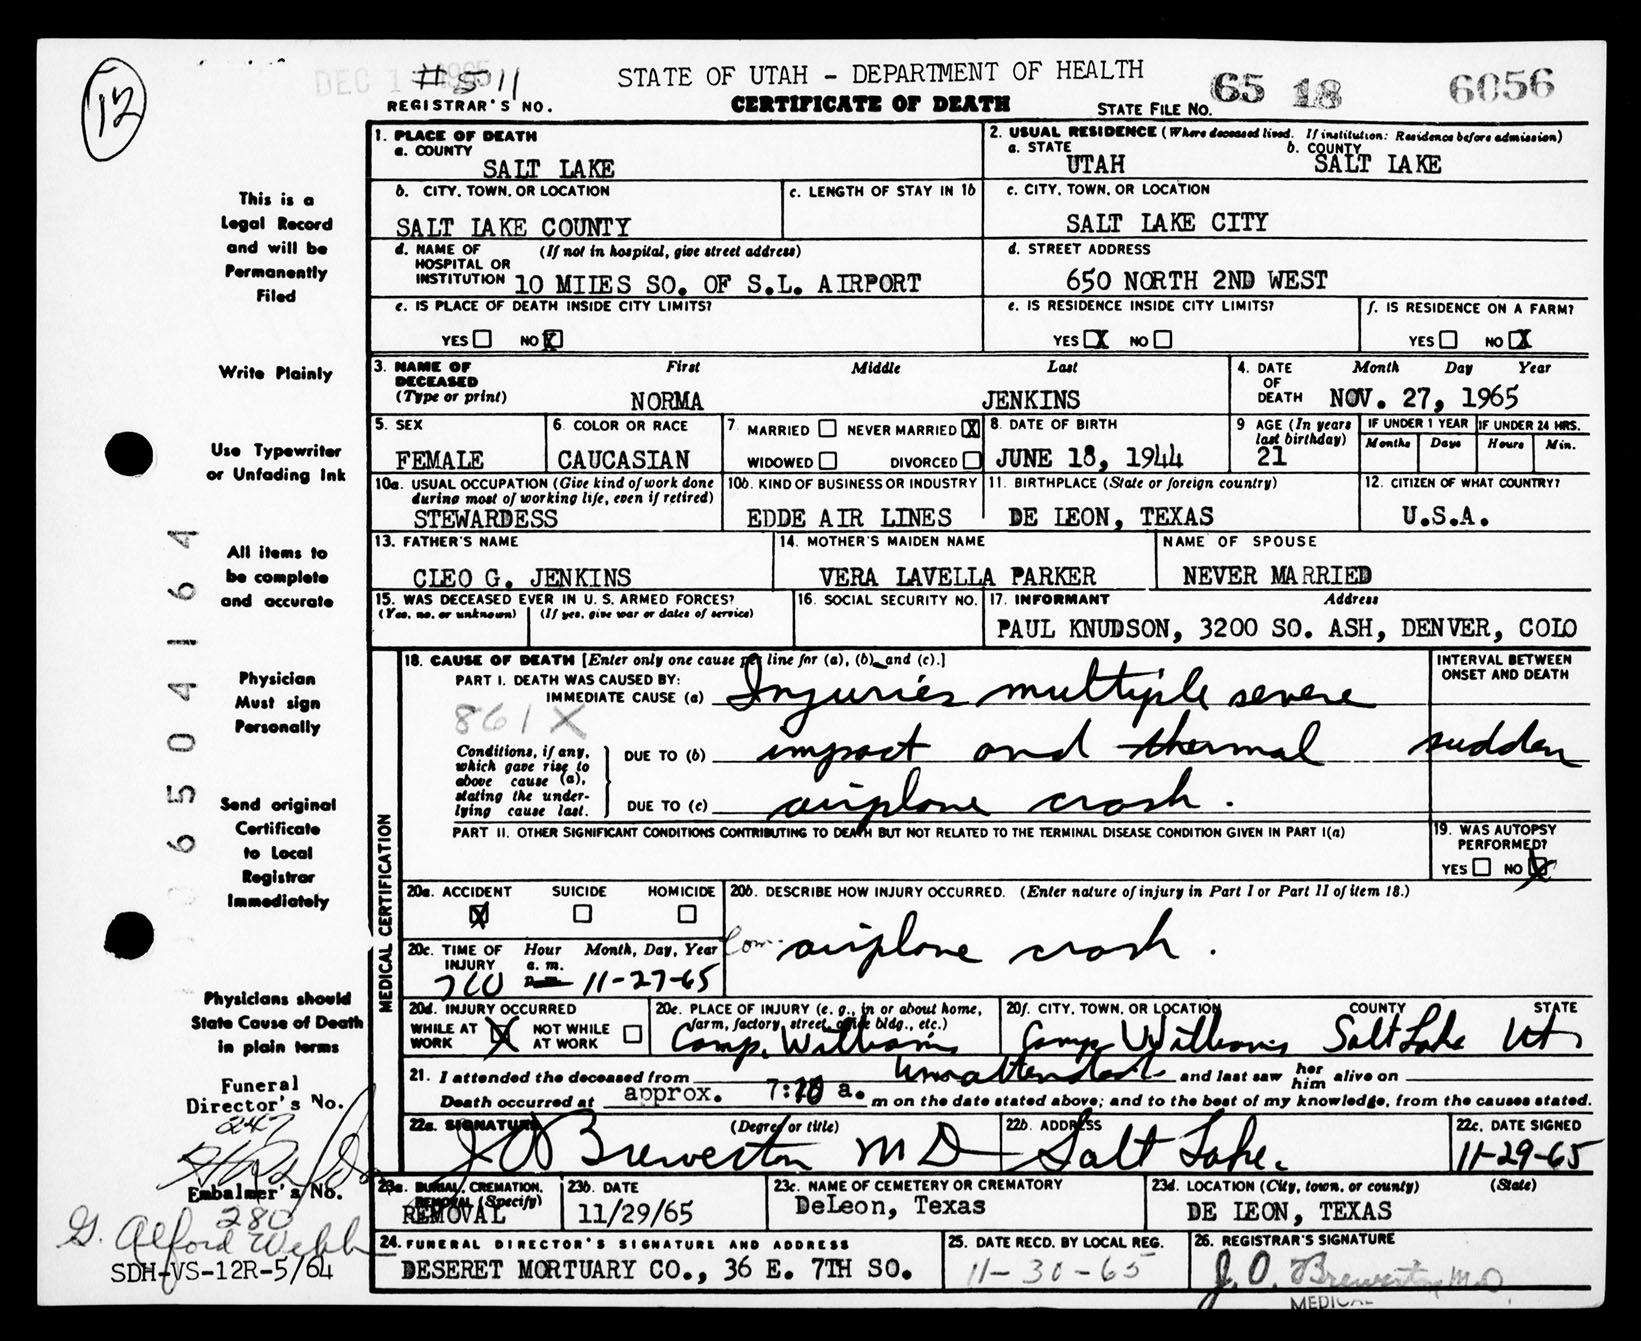 12
DEC 1 1965
#5011
REGISTRAR'S NO.
STATE OF UTAH - DEPARTMENT OF HEALTH
CERTIFICATE OF DEATH
STATE FILE NO. 65 18 6056
This is a
Legal Record
and will be
Permanently
Filed
Write Plainly
Use Typewriter
or Unfading Ink
All items to
be complete
and accurate
Physician
Must sign
Personally
Send original
Certificate
to Local
Registrar
Immediately
Physicians should
State Cause of Death
in plain terms
6504164
Funeral
Director's No.
247
Embalmer's No.
280
G. Alford Webb
SDH-VS-12R-5/64
1. PLACE OF DEATH
a. COUNTY
SALT LAKE
2. USUAL RESIDENCE (Where deceased lived. If institution: Residence before admission)
a. STATE b. COUNTY
UTAH SALT LAKE
b. CITY, TOWN, OR LOCATION
SALT LAKE COUNTY
c. LENGTH OF STAY IN 1b
c. CITY, TOWN, OR LOCATION
SALT LAKE CITY
d. NAME OF (If not in hospital, give street address)
HOSPITAL OR
INSTITUTION 10 MILES SO. OF S.L. AIRPORT
d. STREET ADDRESS
650 NORTH 2ND WEST
e. IS PLACE OF DEATH INSIDE CITY LIMITS?
YES NO X
e. IS RESIDENCE INSIDE CITY LIMITS?
YES X NO
f. IS RESIDENCE ON A FARM?
YES NO X
3. NAME OF First Middle Last
DECEASED
(Type or print) NORMA JENKINS
4. DATE Month Day Year
OF
DEATH NOV. 27, 1965
5. SEX
FEMALE
6. COLOR OR RACE
CAUCASIAN
7. MARRIED NEVER MARRIED X
WIDOWED DIVORCED
8. DATE OF BIRTH
JUNE 18, 1944
9 AGE (In years
last birthday)
21
IF UNDER 1 YEAR IF UNDER 24 HRS.
Months Days Hours Min.
10a. USUAL OCCUPATION (Give kind of work done
during most of working life, even if retired)
STEWARDESS
10b. KIND OF BUSINESS OR INDUSTRY
EDDE AIR LINES
11. BIRTHPLACE (State or foreign country)
DE LEON, TEXAS
12. CITIZEN OF WHAT COUNTRY?
U.S.A.
13. FATHER'S NAME
CLEO G. JENKINS
14. MOTHER'S MAIDEN NAME
VERA LAVELLA PARKER
NAME OF SPOUSE
NEVER MARRIED
15. WAS DECEASED EVER IN U. S. ARMED FORCES?
(Yes, no, or unknown) (If yes, give war or dates of service)
16. SOCIAL SECURITY NO.
17. INFORMANT Address
PAUL KNUDSON, 3200 SO. ASH, DENVER, COLO
MEDICAL CERTIFICATION
18. CAUSE OF DEATH [Enter only one cause per line for (a), (b), and (c).]
INTERVAL BETWEEN
ONSET AND DEATH
PART I. DEATH WAS CAUSED BY:
IMMEDIATE CAUSE (a) Injuries multiple severe
861X
Conditions, if any,
which gave rise to
above cause (a),
stating the under-
lying cause last.
DUE TO (b) impact and thermal sudden
DUE TO (c) airplane crash.
PART II. OTHER SIGNIFICANT CONDITIONS CONTRIBUTING TO DEATH BUT NOT RELATED TO THE TERMINAL DISEASE CONDITION GIVEN IN PART I(a)
19. WAS AUTOPSY
PERFORMED?
YES NO X
20a. ACCIDENT SUICIDE HOMICIDE
X
20b. DESCRIBE HOW INJURY OCCURRED. (Enter nature of injury in Part I or Part II of item 18.)
Com. airplane crash.
20c. TIME OF Hour Month, Day, Year
INJURY a. m.
710 p.m. 11-27-65
20d. INJURY OCCURRED
WHILE AT WORK X NOT WHILE AT WORK
20e. PLACE OF INJURY (e. g., in or about home,
farm, factory, street, office bldg., etc.)
Camp. Williams
20f. CITY, TOWN, OR LOCATION COUNTY STATE
Camp Williams Salt Lake Ut
21. I attended the deceased from unattended and last saw her him alive on
Death occurred at approx. 7:10 a. m on the date stated above; and to the best of my knowledge, from the causes stated.
22a. SIGNATURE (Degree or title)
J O Brewerton MD
22b. ADDRESS
Salt Lake.
22c. DATE SIGNED
11-29-65
23a. BURIAL, CREMATION,
REMOVAL (Specify)
REMOVAL
23b. DATE
11/29/65
23c. NAME OF CEMETERY OR CREMATORY
DeLeon, Texas
23d. LOCATION (City, town, or county) (State)
DE LEON, TEXAS
24. FUNERAL DIRECTOR'S SIGNATURE AND ADDRESS
DESERET MORTUARY CO., 36 E. 7TH SO.
25. DATE RECD. BY LOCAL REG.
11-30-65
26. REGISTRAR'S SIGNATURE
J. O. Brewerton MD
MEDICAL